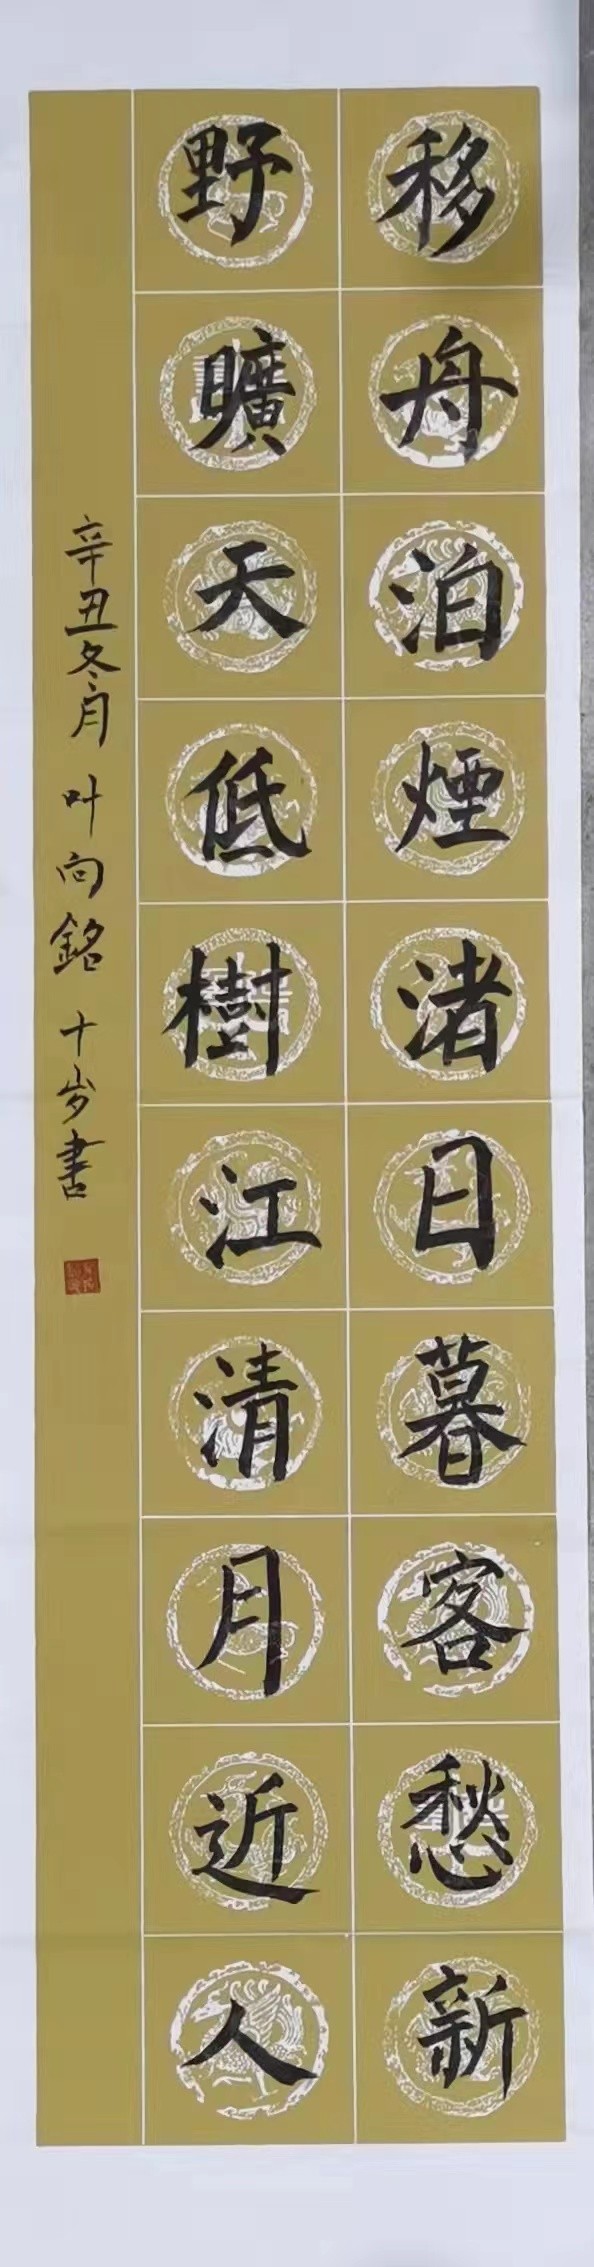 移舟泊煙渚日暮客愁新
野曠天低樹江清月近人
辛丑冬月 叶向銘 十岁書